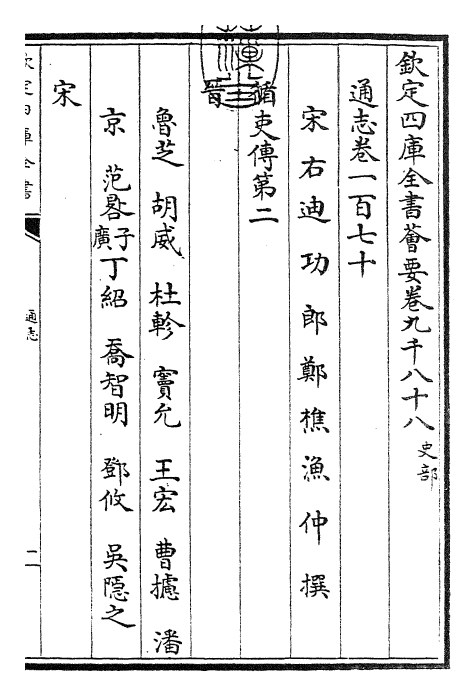 欽定四庫全書薈要卷九千八十八 史部
通志卷一百七十
宋右迪功郎鄭樵漁仲撰
循吏傳第二
晉
魯芝 胡威 杜軫 竇允 王宏 曹攄 潘
京 范晷 子廣 丁紹 喬智明 鄧攸 吳隱之
宋
欽定四庫全書
通志
二